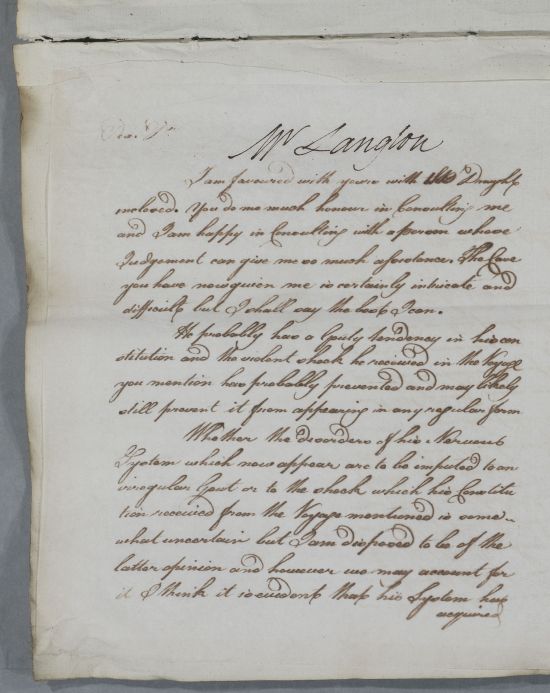 Dear Sir
Mr Langton
I am favoured with yours with the Draught
inclosed. You do me much honour in Consulting me
and I am happy in Consulting with a person whose
Judgement can give me so much assistance. The Case
you have now given me is certainly intricate and
difficult but I shall say the best I can.
He probably has a Gouty tendency in his con
stitution and the violent shock he received in the Voyage
you mention has probably prevented and may likely
still prevent it from appearing in any regular form
Whether the disorders of his Nervous
System which now appear are to be imputed to an
irregular Gout or to the shock which his Constitu
tion received from the Voyage mentioned is some-
what uncertain but I am disposed to be of the
latter opinion and however we may account for
it I think it is evident that his System has
acquired